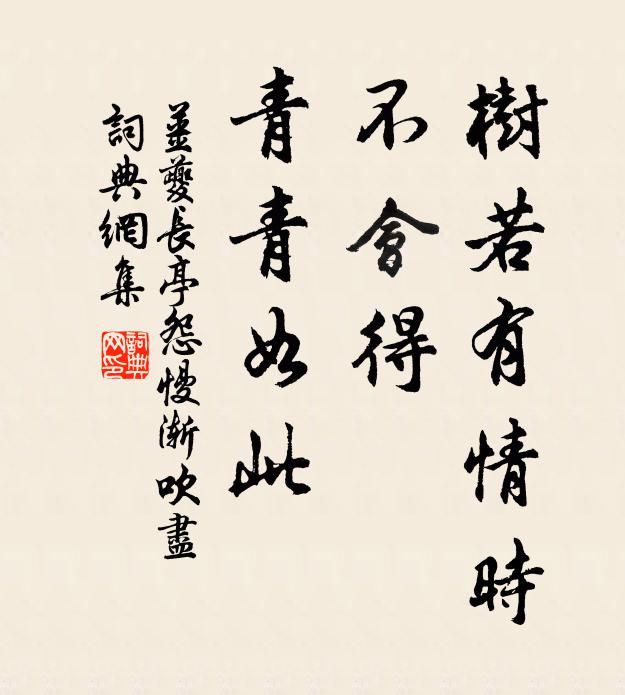 樹若有情時
不會得
青青如此
姜夔長亭怨慢漸吹盡
詞典網集
詞典
网印